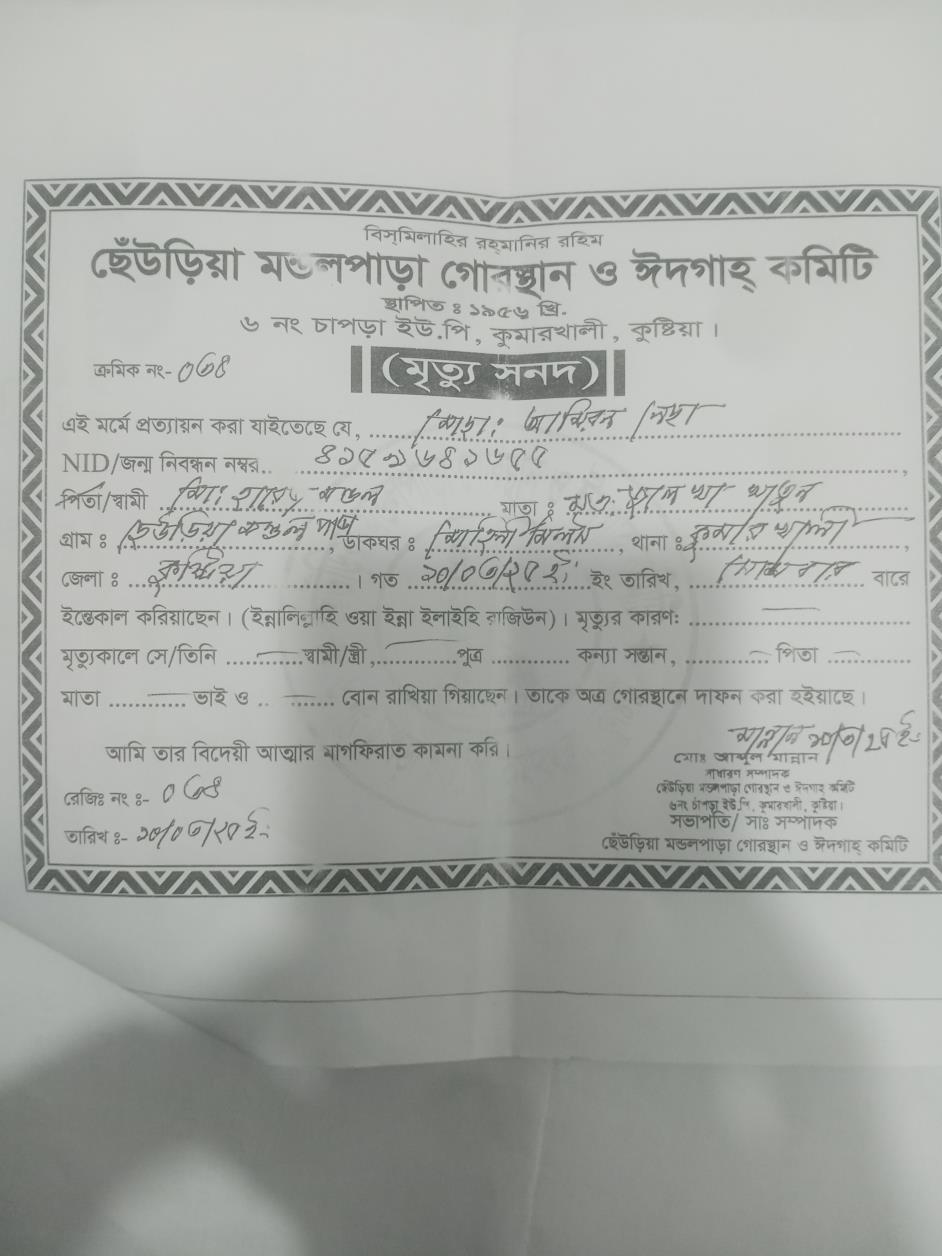 বিস্‌মিলাহির রহ্‌মানির রহিম
ছেঁউড়িয়া মন্ডলপাড়া গোরস্থান ও ঈদগাহ্ কমিটি
স্থাপিত ঃ ১৯৫৬ খ্রি.
৬ নং চাপড়া ইউ.পি, কুমারখালী, কুষ্টিয়া।
ক্রমিক নং- ০৬৪
(মৃত্যু সনদ)
এই মর্মে প্রত্যায়ন করা যাইতেছে যে, মোছা: নেছা
NID/জন্ম নিবন্ধন নম্বর..
পিতা/স্বামী মো: মন্ডল মাতা ঃ মৃত: খাতুন
গ্রাম ঃ ছেউড়িয়া মন্ডল পাড়া, ডাকঘর ঃ মোহিনী মিলস, থানা ঃ কুমারখালী,
জেলা ঃ কুষ্টিয়া । গত ১০/০৩/২৫ ইং ইং তারিখ, সোমবার বারে
ইন্তেকাল করিয়াছেন। (ইন্নালিল্লাহি ওয়া ইন্না ইলাইহি রাজিউন)। মৃত্যুর কারণ:
মৃত্যুকালে সে/তিনি ............ স্বামী/স্ত্রী, ............ পুত্র ............ কন্যা সন্তান, ............ পিতা ............
মাতা ............ ভাই ও ............ বোন রাখিয়া গিয়াছেন। তাকে অত্র গোরস্থানে দাফন করা হইয়াছে।
আমি তার বিদেয়ী আত্মার মাগফিরাত কামনা করি।
মান্নান ১০/৩/২৫ ইং
মোঃ আব্দুল মান্নান
সাধারন সম্পাদক
ছেউড়িয়া মন্ডলপাড়া গোরস্থান ও ঈদগাহ কমিটি
৬নং চাপড়া ইউ.পি, কুমারখালী, কুষ্টিয়া।
রেজিঃ নং ঃ- ০৬৪
সভাপতি/ সাঃ সম্পাদক
তারিখ ঃ- ১০/০৩/২৫ ইং
ছেঁউড়িয়া মন্ডলপাড়া গোরস্থান ও ঈদগাহ্ কমিটি